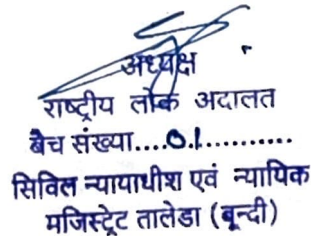 अध्यक्ष
राष्ट्रीय लोक अदालत
बैच संख्या....01...........
सिविल न्यायाधीश एवं न्यायिक
मजिस्ट्रेट तालेडा (बून्दी)